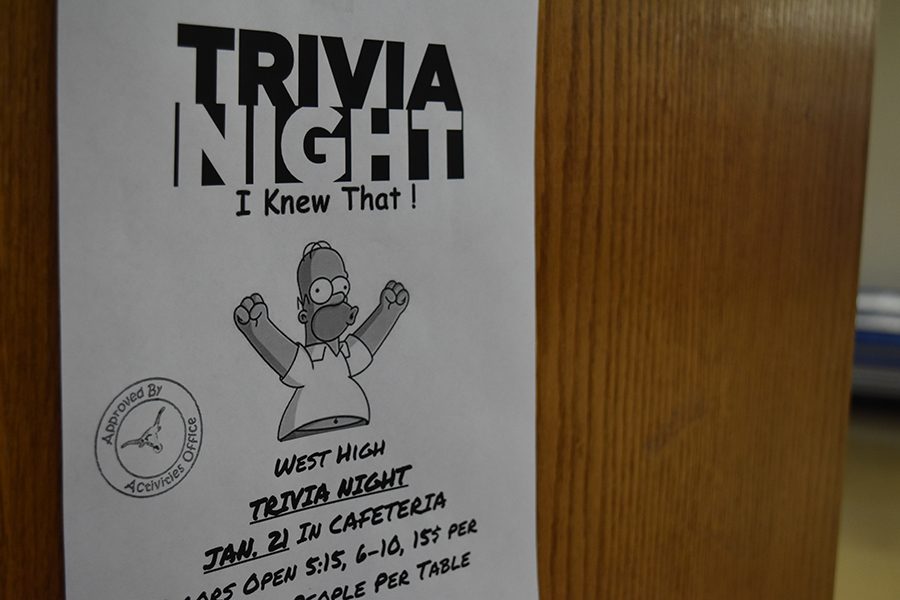 TRIVIA
NIGHT
I Knew That !
Approved By
Activities Office
WEST HIGH
TRIVIA NIGHT
JAN. 21 IN CAFETERIA
OPEN 5:15, 6-10, 15$ PER
PEOPLE PER TABLE